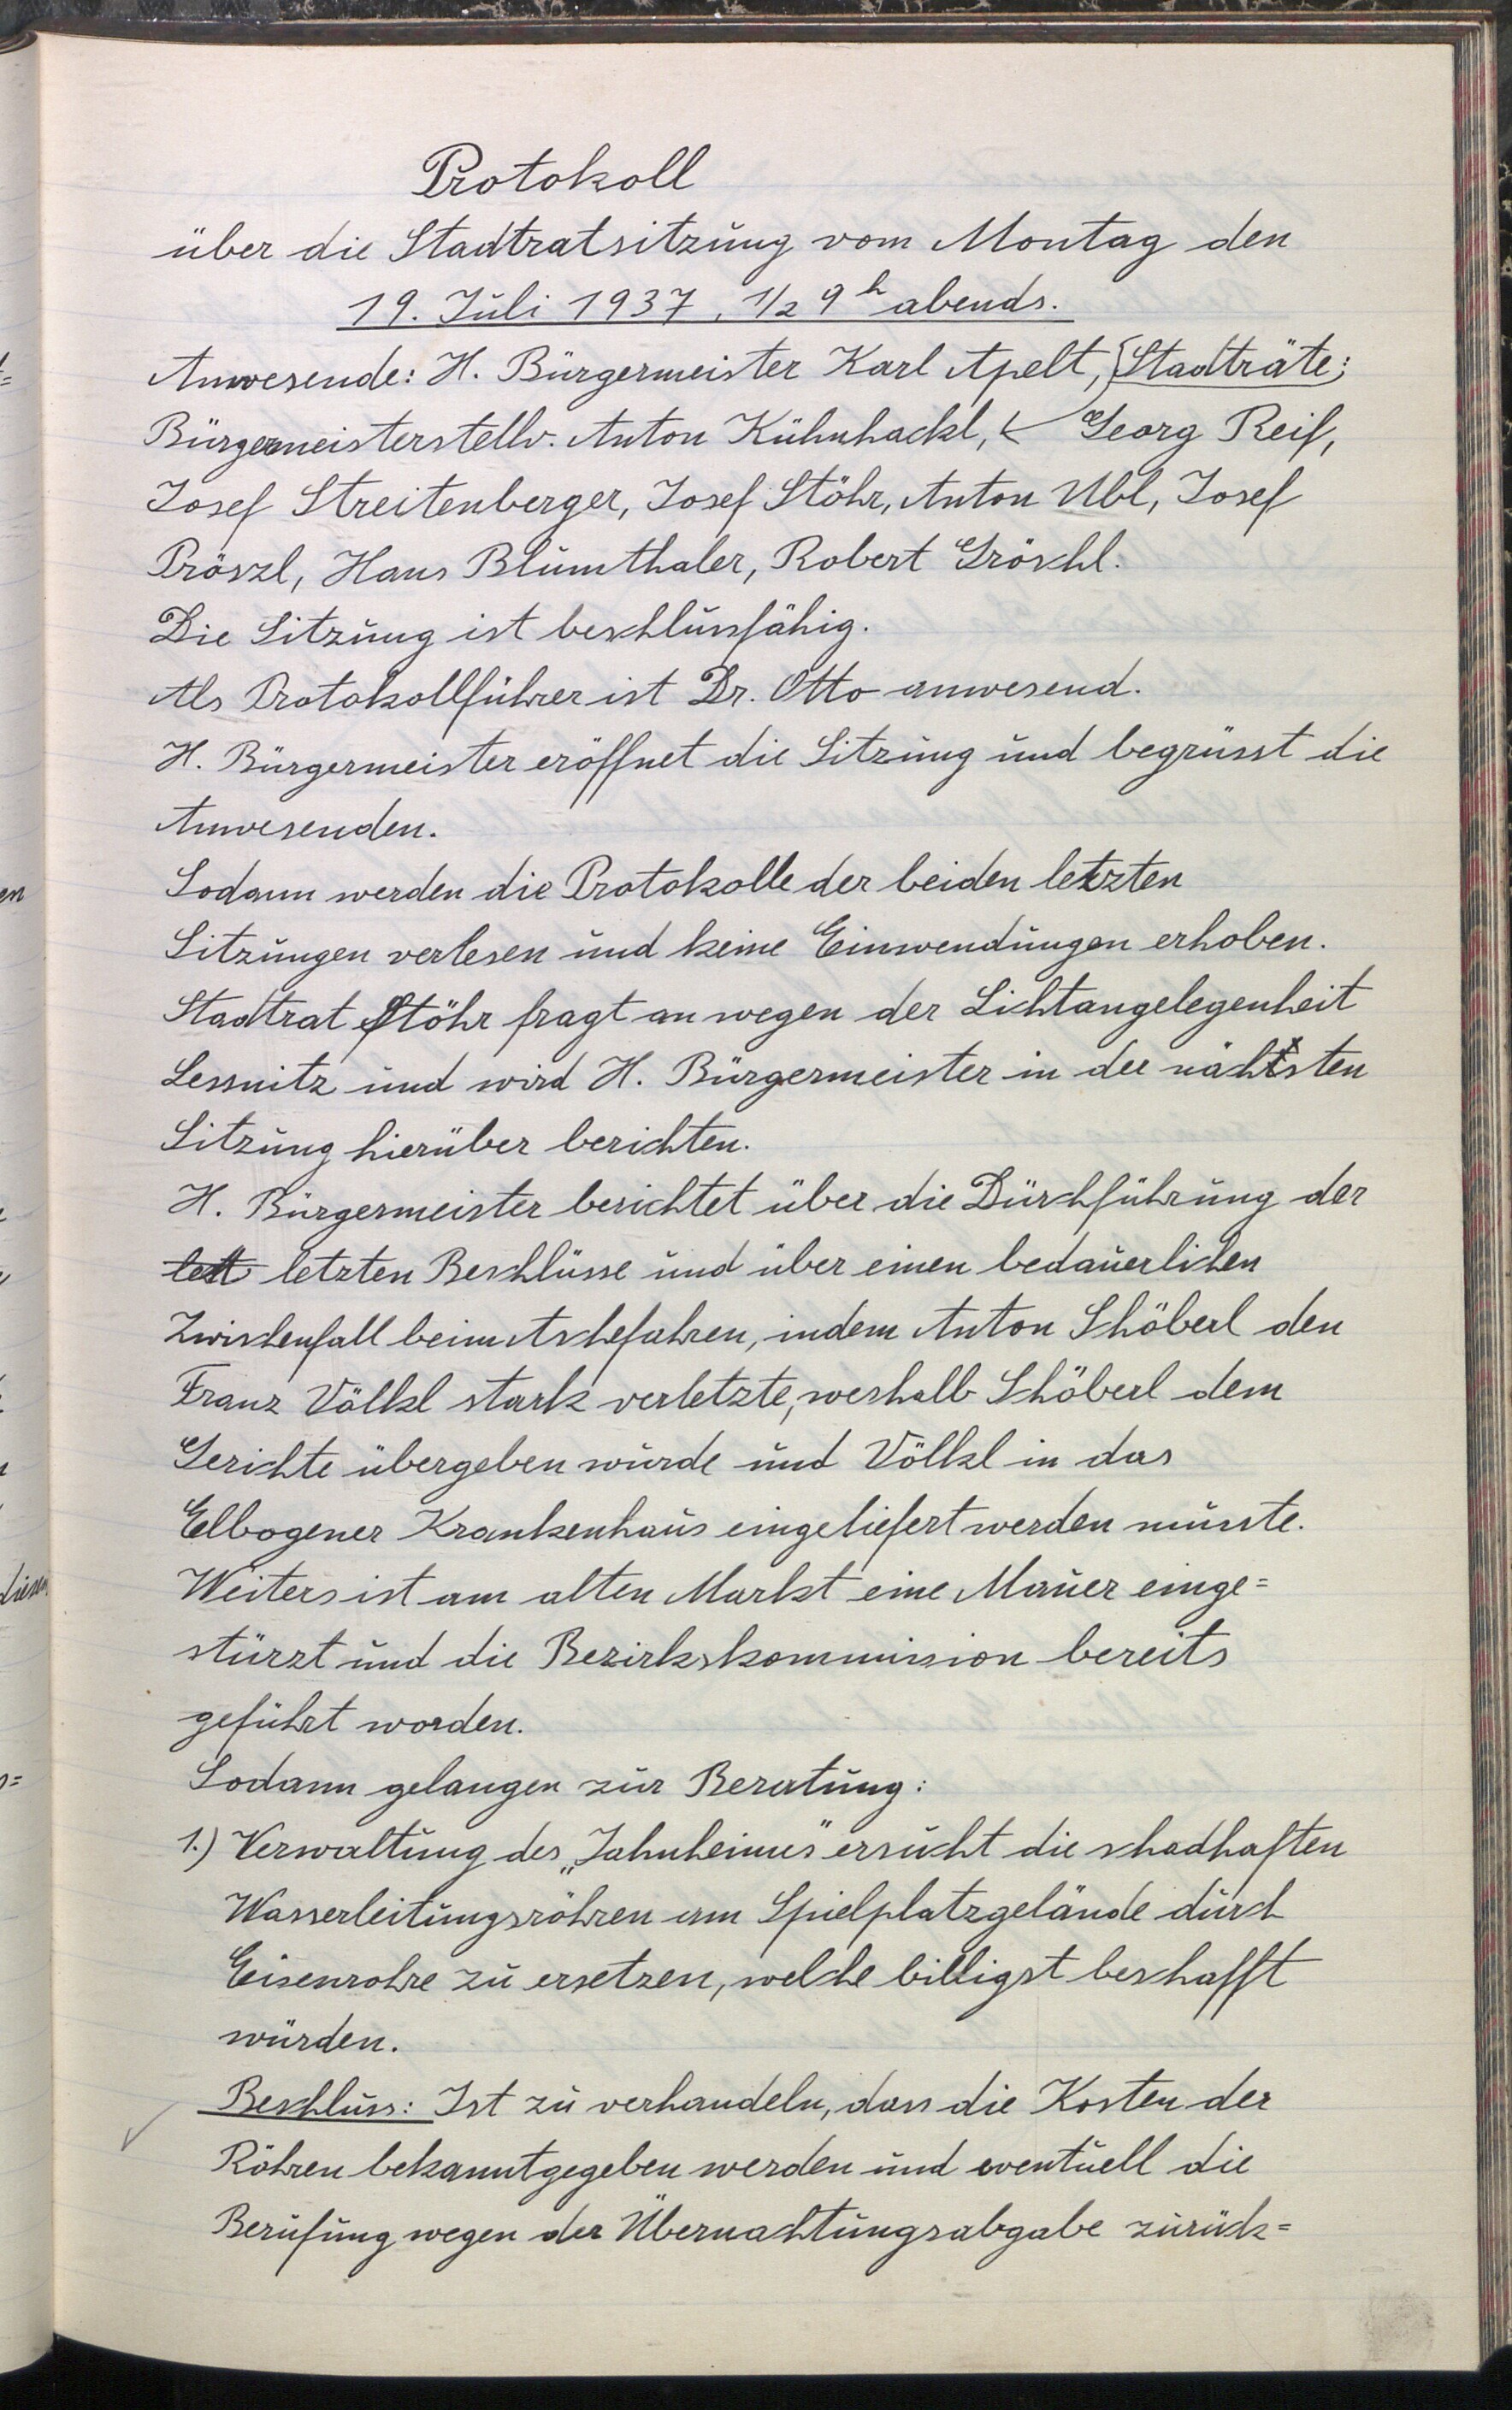 Protokoll
über die Stadtratsitzung vom Montag den
19. Juli 1937, 1/2 9h abends.
Anwesende: H. Bürgermeister Karl Apelt, Stadträte:
Bürgermeisterstellv. Anton Kühnhackl, Georg Reif,
Josef Streitenberger, Josef Stöhr, Anton Ubl, Josef
Pröszl, Hans Blumthaler, Robert Gröschl.
Die Sitzung ist beschlussfähig.
Als Protokollführer ist Dr. Otto anwesend.
H. Bürgermeister eröffnet die Sitzung und begrüsst die
Anwesenden.
Sodann werden die Protokolle der beiden letzten
Sitzungen verlesen und keine Einwendungen erhoben.
Stadtrat Stöhr fragt an wegen der Lichtangelegenheit
Lessnitz und wird H. Bürgermeister in der nächsten
Sitzung hierüber berichten.
H. Bürgermeister berichtet über die Durchführung der
lett letzten Beschlüsse und über einen bedauerlichen
Zwischenfall beim Aschefahren, indem Anton Schöberl den
Franz Völkl stark verletzte, weshalb Schöberl dem
Gerichte übergeben wurde und Völkl in das
Elbogener Krankenhaus eingeliefert werden musste.
Weiters ist am alten Markt eine Mauer einge=
stürzt und die Bezirkskommission bereits
geführt worden.
Sodann gelangen zur Beratung:
1.) Verwaltung des „Jahnheimes" ersucht die schadhaften
Wasserleitungsröhren am Spielplatzgelände durch
Eisenrohre zu ersetzen, welche billigst beschafft
würden.
Beschluss: Ist zu verhandeln, dass die Kosten der
Röhren bekanntgegeben werden und eventuell die
Berufung wegen der Übernachtungsabgabe zurück=